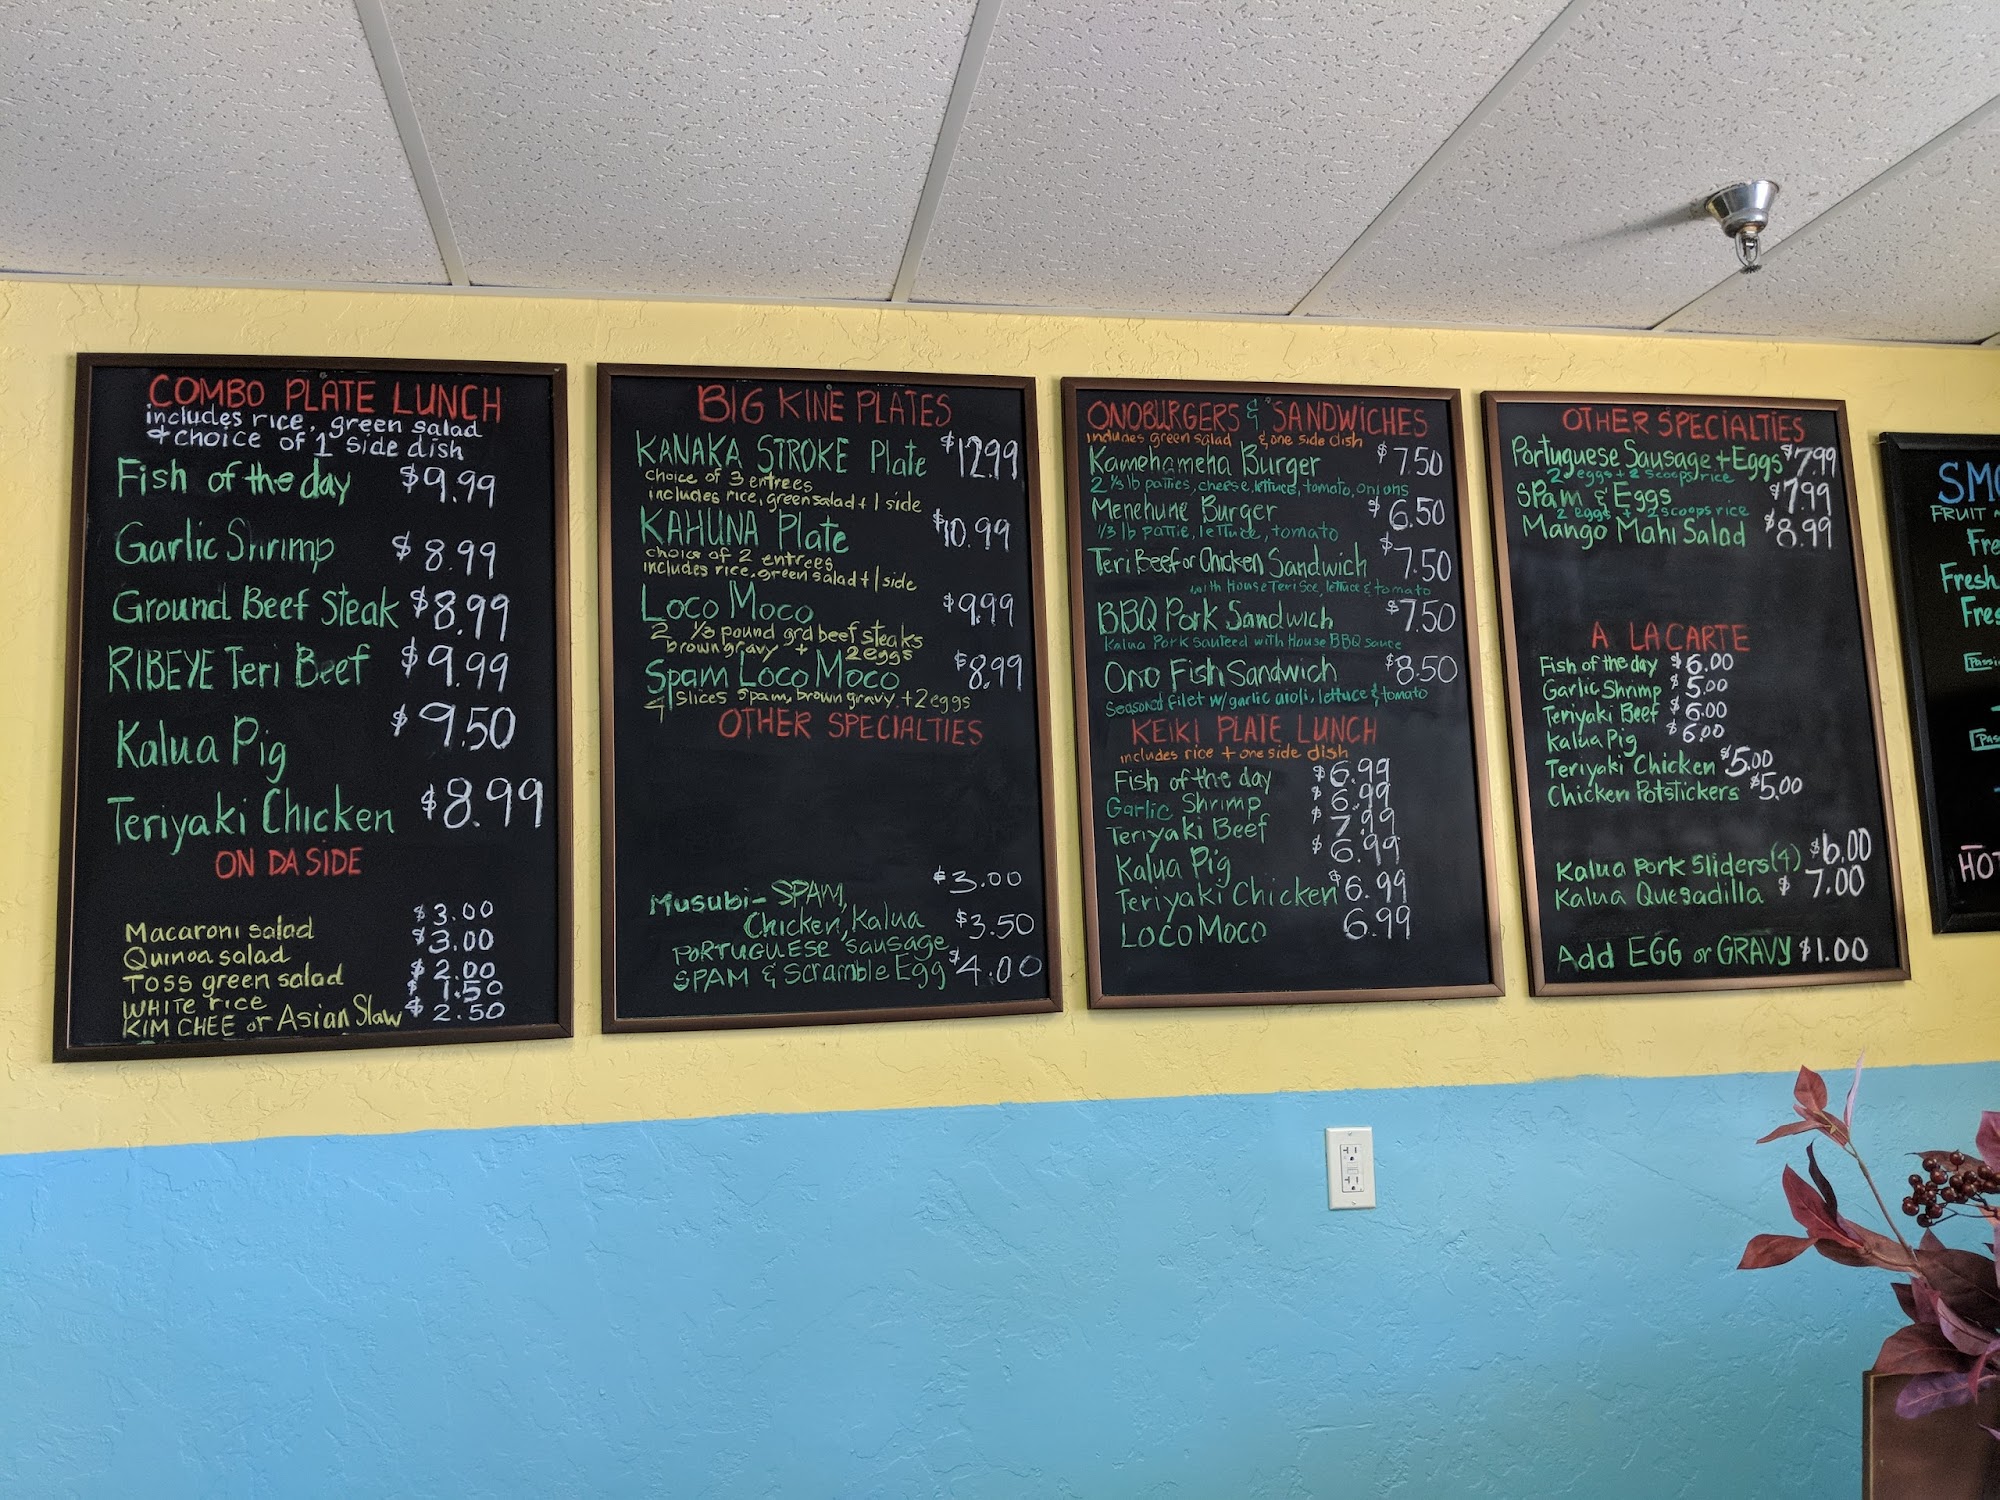 COMBO PLATE LUNCH
includes rice, green salad
+ choice of 1 side dish
Fish of the day $9.99
Garlic Shrimp $8.99
Ground Beef Steak $8.99
RIBEYE Teri Beef $9.99
Kalua Pig $9.50
Teriyaki Chicken $8.99
ON DA SIDE
Macaroni salad $3.00
Quinoa salad $3.00
Toss green salad $2.00
WHITE rice $1.50
KIM CHEE or Asian Slaw $2.50
BIG KINE PLATES
KANAKA STROKE Plate $12.99
choice of 3 entrees
includes rice, green salad + 1 side
KAHUNA Plate $10.99
choice of 2 entrees
includes rice, green salad + 1 side
Loco Moco $9.99
2 1/3 pound grd beef steaks
brown gravy + 2 eggs
Spam Loco Moco $8.99
4 slices spam, brown gravy + 2 eggs
OTHER SPECIALTIES
$3.00
Musubi - SPAM,
Chicken, Kalua $3.50
PORTUGUESE sausage
SPAM & Scramble Egg $4.00
ONO BURGERS & SANDWICHES
includes green salad & one side dish
Kamehameha Burger $7.50
2 1/3 lb patties, cheese, lettuce, tomato, onions
Menehune Burger $6.50
1/3 lb pattie, lettuce, tomato
Teri Beef or Chicken Sandwich $7.50
with House Teri Sce, lettuce & tomato
BBQ Pork Sandwich $7.50
Kalua Pork Sauteed with House BBQ sauce
Ono Fish Sandwich $8.50
Seasoned filet w/garlic aioli, lettuce & tomato
KEIKI PLATE LUNCH
includes rice + one side dish
Fish of the day $6.99
Garlic Shrimp $6.99
Teriyaki Beef $7.99
Kalua Pig $6.99
Teriyaki Chicken $6.99
LOCO MOCO 6.99
OTHER SPECIALTIES
Portuguese Sausage + Eggs $7.99
2 eggs + 2 scoops rice
Spam & Eggs $7.99
2 eggs + 2 scoops rice
Mango Mahi Salad $8.99
A LA CARTE
Fish of the day $6.00
Garlic Shrimp $5.00
Teriyaki Beef $6.00
Kalua Pig $6.00
Teriyaki Chicken $5.00
Chicken Potstickers $5.00
Kalua Pork Sliders (4) $6.00
Kalua Quesadilla $7.00
Add EGG or GRAVY $1.00
SMO
FRUIT
Fre
Fresh
Fres
HOT